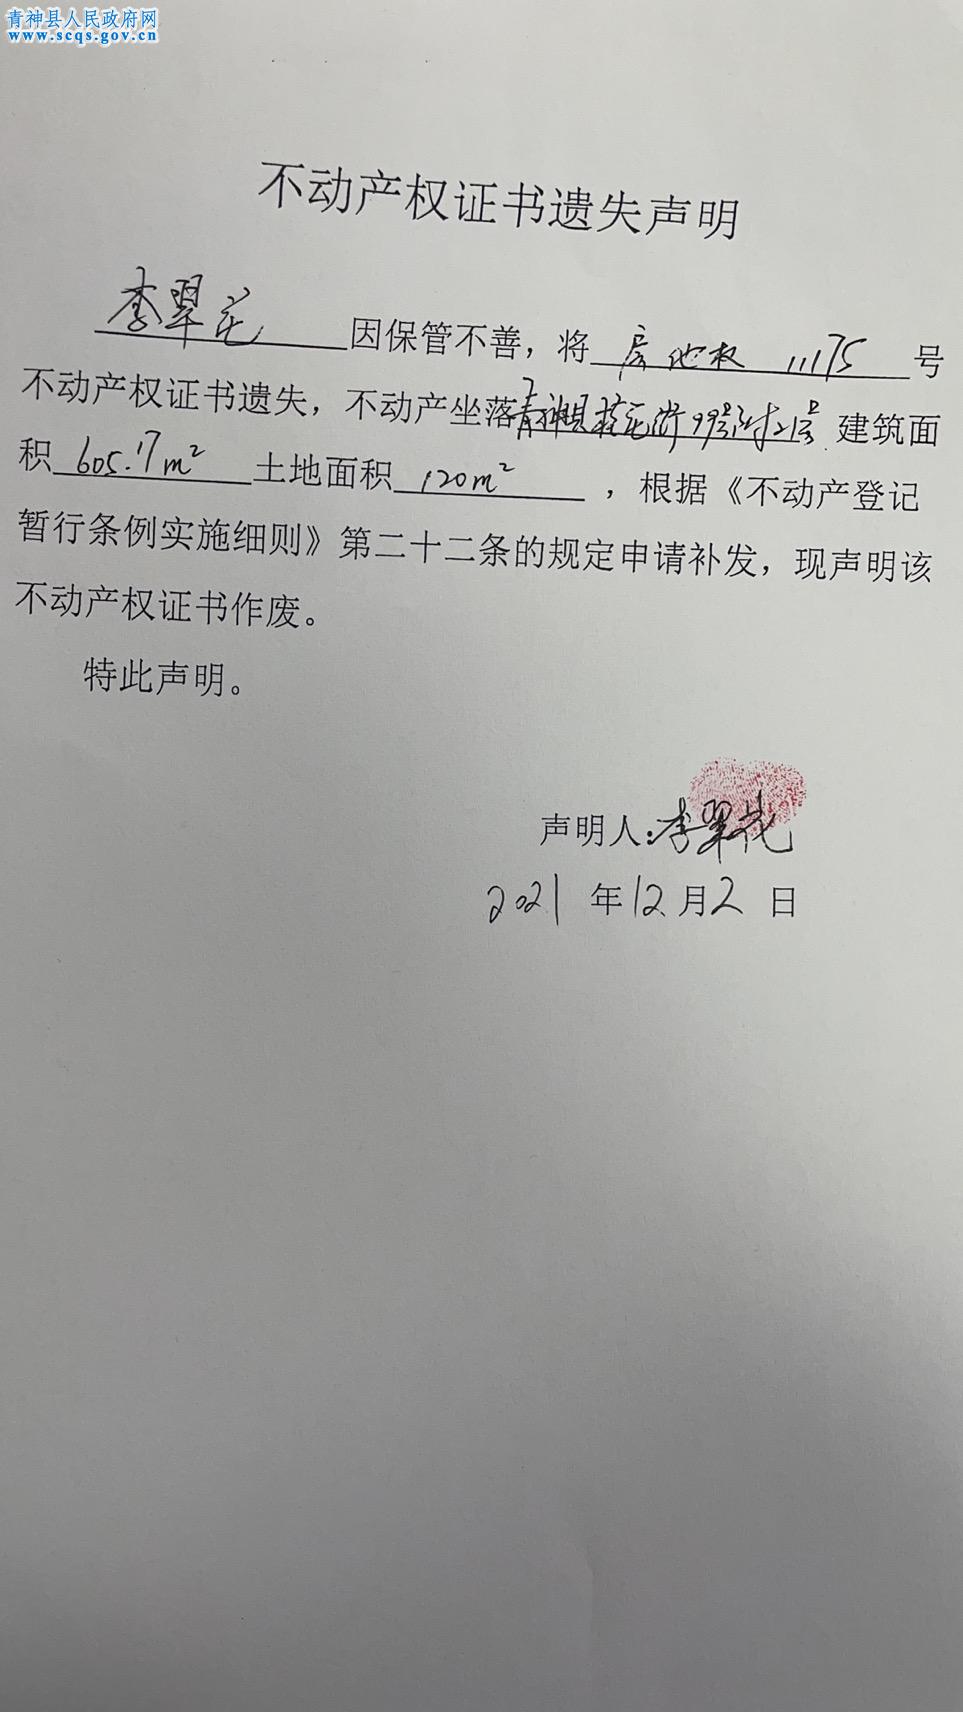 青神县人民政府网
www.scqs.gov.cn
不动产权证书遗失声明
李翠花 因保管不善，将 房地权 11175 号
不动产权证书遗失，不动产坐落青神县 花街99号附21号 建筑面
积 605.17m² 土地面积 120m² ，根据《不动产登记
暂行条例实施细则》第二十二条的规定申请补发，现声明该
不动产权证书作废。
特此声明。
声明人：李翠花
2021 年 12 月 2 日